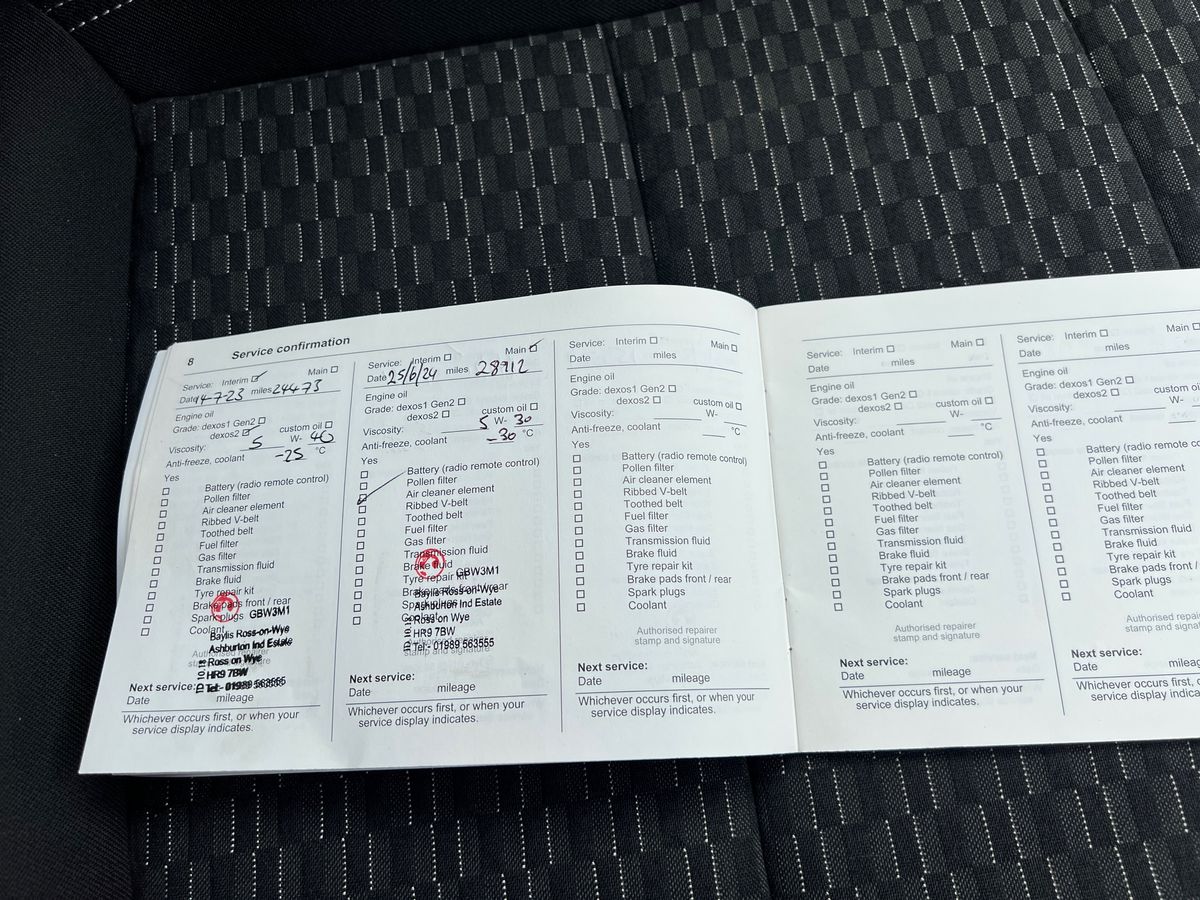 8 Service confirmation
Service: Interim Main
Date 4-7-23 miles 24473
Engine oil
Grade: dexos1 Gen2
dexos2 custom oil
Viscosity: 5 W- 40
Anti-freeze, coolant -25 °C
Yes
Battery (radio remote control)
Pollen filter
Air cleaner element
Ribbed V-belt
Toothed belt
Fuel filter
Gas filter
Transmission fluid
Brake fluid
Tyre repair kit
Brake pads front / rear
Spark plugs GBW3M1
Coolant
Baylis Ross-on-Wye
Ashburton Ind Estate
Authorised repairer
stamp and signature
Ross on Wye
HR9 7BW
Tel:- 01989 563555
Next service:
Date mileage
Whichever occurs first, or when your
service display indicates.
Service: Interim Main
Date 25/6/24 miles 28912
Engine oil
Grade: dexos1 Gen2
dexos2 custom oil
Viscosity: 5 W- 30
Anti-freeze, coolant -30 °C
Yes
Battery (radio remote control)
Pollen filter
Air cleaner element
Ribbed V-belt
Toothed belt
Fuel filter
Gas filter
Transmission fluid
Brake fluid
GBW3M1
Tyre repair kit
Brake pads front / rear
Baylis Ross-on-Wye
Spark plugs
Ashburton Ind Estate
Coolant
Ross on Wye
HR9 7BW
Authorised repairer
stamp and signature
Tel:- 01989 563555
Next service:
Date mileage
Whichever occurs first, or when your
service display indicates.
Service: Interim Main
Date miles
Engine oil
Grade: dexos1 Gen2
dexos2 custom oil
Viscosity: W-
Anti-freeze, coolant °C
Yes
Battery (radio remote control)
Pollen filter
Air cleaner element
Ribbed V-belt
Toothed belt
Fuel filter
Gas filter
Transmission fluid
Brake fluid
Tyre repair kit
Brake pads front / rear
Spark plugs
Coolant
Authorised repairer
stamp and signature
Next service:
Date mileage
Whichever occurs first, or when your
service display indicates.
Service: Interim Main
Date miles
Engine oil
Grade: dexos1 Gen2
dexos2 custom oil
Viscosity: W-
Anti-freeze, coolant °C
Yes
Battery (radio remote control)
Pollen filter
Air cleaner element
Ribbed V-belt
Toothed belt
Fuel filter
Gas filter
Transmission fluid
Brake fluid
Tyre repair kit
Brake pads front / rear
Spark plugs
Coolant
Authorised repairer
stamp and signature
Next service:
Date mileage
Whichever occurs first, or when your
service display indicates.
Service: Interim Main
Date miles
Engine oil
Grade: dexos1 Gen2
dexos2 custom
Viscosity: W-
Anti-freeze, coolant
Yes
Battery (radio remote
Pollen filter
Air cleaner element
Ribbed V-belt
Toothed belt
Fuel filter
Gas filter
Transmission fluid
Brake fluid
Tyre repair kit
Brake pads front /
Spark plugs
Coolant
Authorised
stamp and
Next service:
Date mileage
Whichever occurs first, or when
service display indicates.